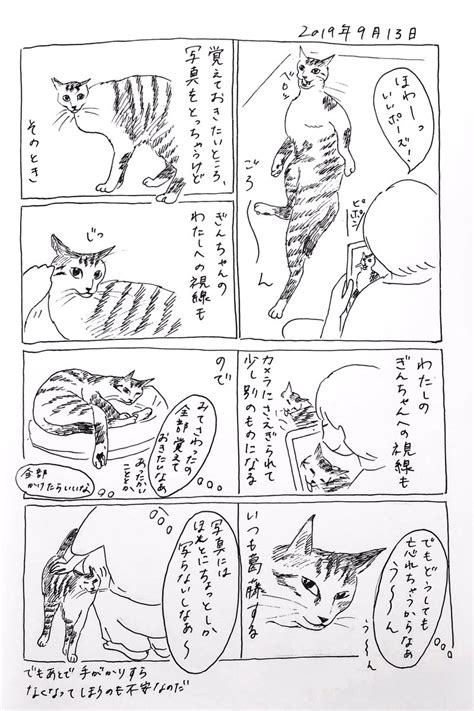 2019年9月13日
ほわーっ
いいポーズ!
ゴロン
ごろ
ーん
ピポン
覚えておきたいところ、
写真をとっちゃうけど
そのとき
ぎんちゃんの
わたしへの視線も
じっ
わたしの
ぎんちゃんへの視線も
カメラにさえぎられて
少し別のものになる
ので
みてさわったの
全部覚えて
おきたいなぁ
あったかい
こととか
全部
かけたらいいな
でもどうしても
忘れちゃうからなぁ
う〜ん
う〜ん
いつも葛藤する
写真には
ほんとにちょっとしか
写らないしなぁ〜
でもあとで手がかりすら
なくなってしまうのも不安なのだ